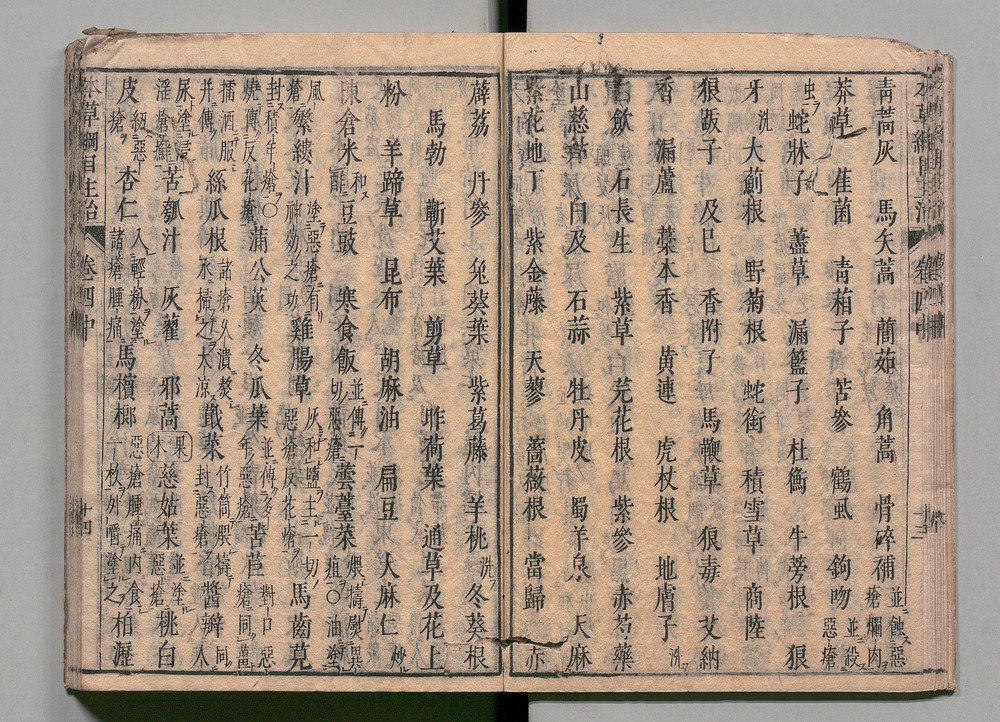 青蒿灰 馬矢蒿 藘茹 角蒿 骨碎補 並ニ蝕ス惡瘡爛肉ヲ
莽草 雈菌 青葙子 苦參 鶴虱 鉤吻 並ニ殺ス惡瘡
虫ヲ 蛇牀子 藎草 漏籃子 杜衡 牛蒡根 狼
牙 洗 大薊根 野菊根 蛇銜 積雪草 商陸
狼跋子 及巳 香附子 馬鞭草 狼毒 艾納
香 漏蘆 藁本香 黃連 虎杖根 地膚子 洗フ
白斂 石長生 紫草 白芫花根 紫參 赤芍藥
山慈菇 白及 石蒜 牡丹皮 蜀羊泉 天麻
紫花地丁 紫金藤 天蓼 薔薇根 當歸 赤
薜荔 丹參 兔葵葉 紫葛藤 羊桃 洗フ 冬葵根
馬勃 蘄艾葉 剪草 昨荷葉 通草及花上
粉 羊蹄草 昆布 胡麻油 扁豆 大麻仁 炒
陳倉米 和ス酢 豆豉 寒食飯 並傅一切惡瘡 蕓薹菜 煨擣熨異疽○油塗
風瘡 繁縷汁 塗惡瘡有神効之功 雞腸草 灰和鹽主一切惡瘡反花瘡 馬齒莧
封積年瘡○燒傅反花瘡 蒲公英 冬瓜葉 並傅多年惡瘡 苦苣 對口惡瘡同薑
擂酒服并傅 絲瓜根 諸瘡久潰熬水掃之大涼 蕺菜 竹筒煨擣封惡瘡 醬瓣 同人
尿塗 淫瘡癬 苦瓠汁 灰藋 邪蒿 果木 慈姑葉 並塗惡瘡 桃白
皮 紉惡瘡 杏仁 入輕粉塗諸瘡腫痛 馬檳榔 惡瘡腫痛內食一枚外嚼塗之 柏瀝
本草綱目主治 卷四中 十四